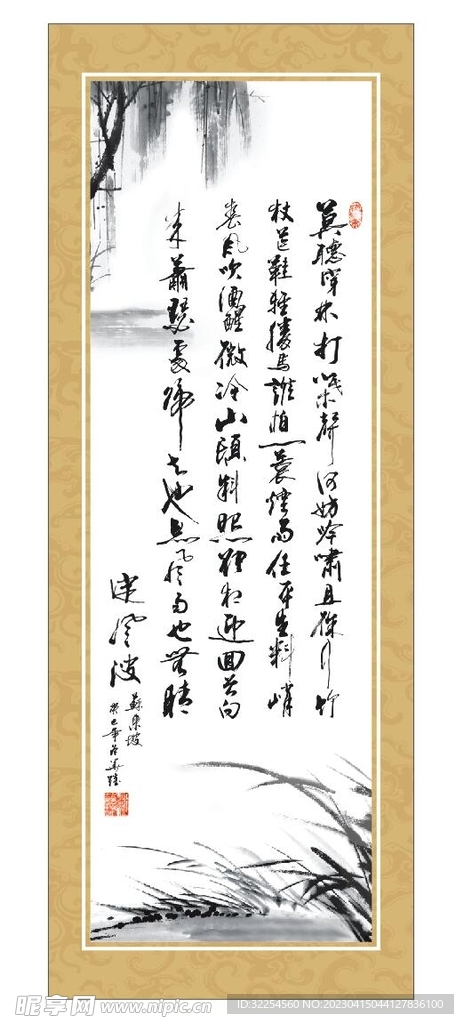 莫聽穿林打葉聲何妨吟嘯且徐行竹
杖芒鞋輕勝馬誰怕一蓑煙雨任平生料峭
春風吹酒醒微冷山頭斜照卻相迎回首向
来蕭瑟處歸去也無風雨也無晴
定風波
蘇東坡
癸巳年
昵享网 www.nipic.cn
ID:32254560 NO:20230415044127836100